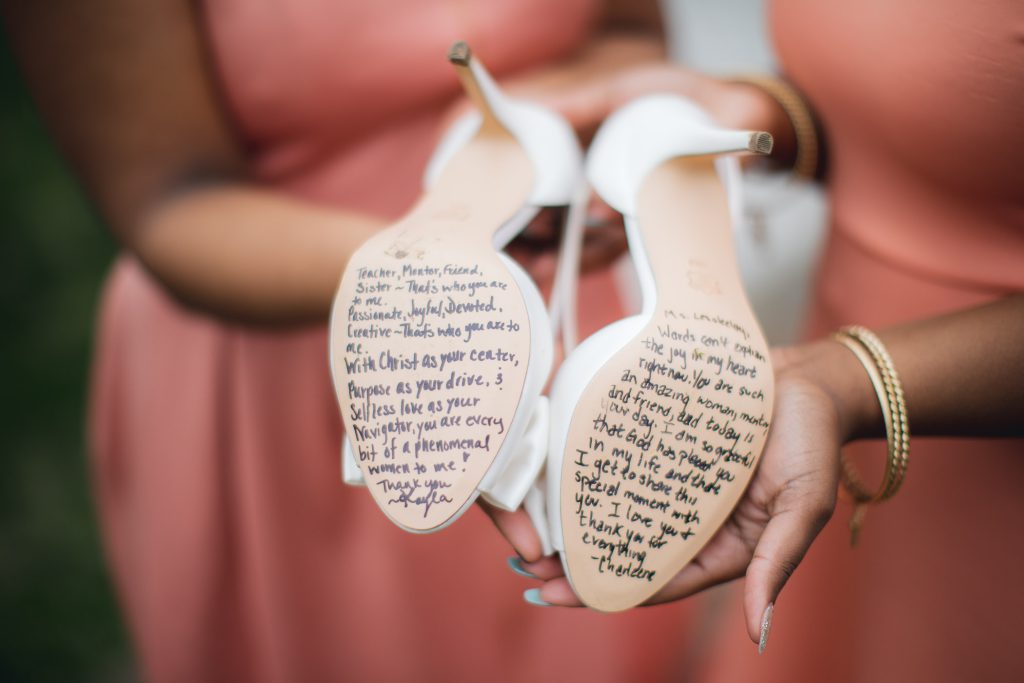 Teacher, Mentor, Friend,
Sister ~ That's who you are
to me.
Passionate, Joyful, Devoted,
Creative ~ That's who you are to
me.
With Christ as your center,
Purpose as your drive, &
Selfless love as your
Navigator, you are every
bit of a phenomenal
women to me!
Thank you
~Kayla
Ms.
Words can't explain
the joy in my heart
right now. You are such
an amazing woman, mentor
and friend, and today is
your day. I am so grateful
that God has placed you
in my life and that
I get to share this
special moment with
you. I love you &
thank you for
everything
-Charlzene